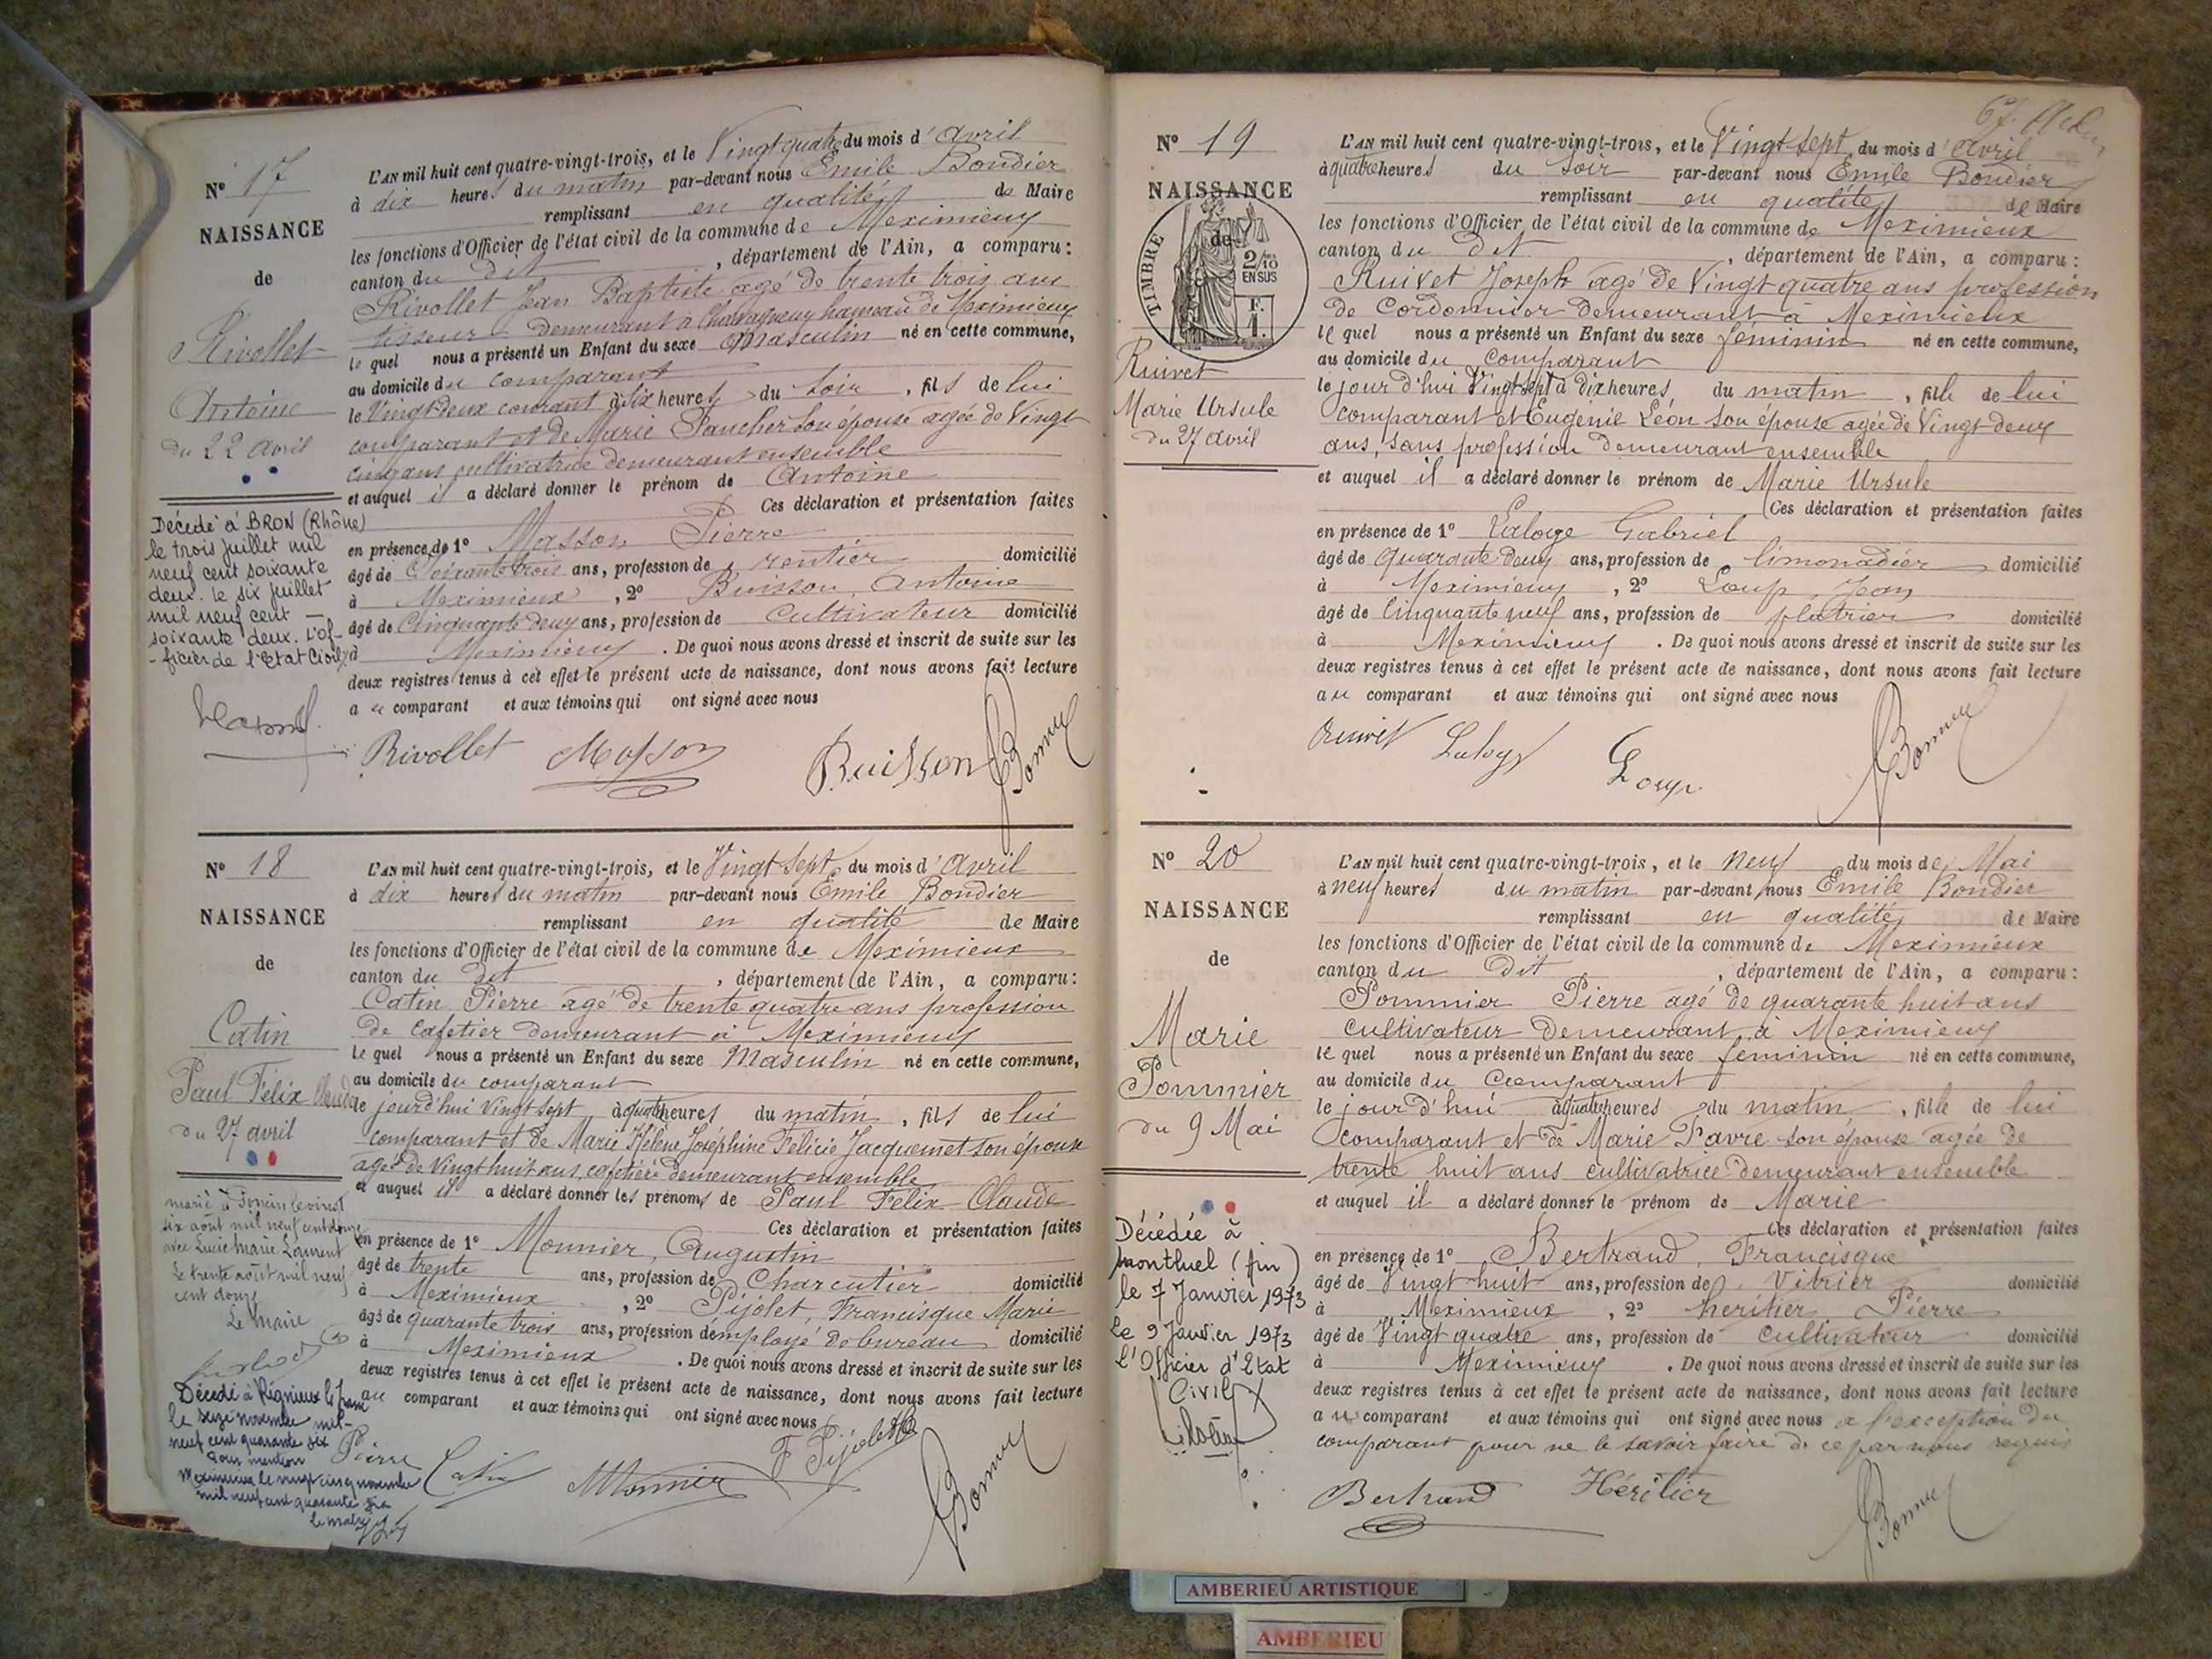 N° 17
NAISSANCE
de
Rivollet
Antoine
du 22 avril
Décédé à BRON (Rhône)
le trois juillet mil
neuf cent soixante
deux. le six juillet
mil neuf cent —
soixante deux. L'of-
-ficier de l'Etat Civil
L'AN mil huit cent quatre-vingt-trois, et le Vingt quatre du mois d'avril
à dix heures du matin par-devant nous Emile Bondier
remplissant en qualité de Maire
les fonctions d'Officier de l'état civil de la commune de Meximieux
canton du dit , département de l'Ain, a comparu :
Rivollet Jean Baptiste agé de trente trois ans
tisseur demeurant à hameau de Meximieux
le quel nous a présenté un Enfant du sexe Masculin né en cette commune,
au domicile du comparant
le Vingt deux courant à six heures du soir , fils de lui
comparant et de Marie son épouse agée de Vingt
cinq ans cultivatrice demeurant ensemble
et auquel il a déclaré donner le prénom de Antoine
Ces déclaration et présentation faites
en présence de 1° Masson Pierre
âgé de Soixante trois ans, profession de rentier domicilié
à Meximieux , 2° Buisson, Antoine
âgé de Cinquante deux ans, profession de Cultivateur domicilié
à Meximieux . De quoi nous avons dressé et inscrit de suite sur les
deux registres tenus à cet effet le présent acte de naissance, dont nous avons fait lecture
au comparant et aux témoins qui ont signé avec nous
Rivollet Masson Buisson
N° 18
NAISSANCE
de
Catin
Paul Félix Claude
du 27 avril
marié à le vingt
six août mil neuf cent douze
avec Lucie Marie Laurent
Le trente août mil neuf
cent douze
Le Maire
Décédé à
le seize novembre mil-
neuf cent quarante six
Pour mention
Meximieux le vingt cinq novembre
mil neuf cent quarante six
Le maire
L'AN mil huit cent quatre-vingt-trois, et le Vingt Sept du mois d'avril
à dix heures du matin par-devant nous Emile Bondier
remplissant en qualité de Maire
les fonctions d'Officier de l'état civil de la commune de Meximieux
canton du dit , département de l'Ain, a comparu :
Catin Pierre agé de trente quatre ans profession
de cafetier demeurant à Meximieux
le quel nous a présenté un Enfant du sexe Masculin né en cette commune,
au domicile du comparant
le jourd'hui Vingt Sept à quatre heures du matin , fils de lui
comparant et de Marie Hélène Joséphine Félicie Jacquemet son épouse
agée de Vingt huit ans, cafetière demeurant ensemble
et auquel il a déclaré donner les prénoms de Paul Félix Claude
Ces déclaration et présentation faites
en présence de 1° Monnier, Augustin
âgé de trente ans, profession de Charcutier domicilié
à Meximieux , 2° Pijolet, Francisque Marie
âgé de quarante trois ans, profession d'employé de bureau domicilié
à Meximieux . De quoi nous avons dressé et inscrit de suite sur les
deux registres tenus à cet effet le présent acte de naissance, dont nous avons fait lecture
au comparant et aux témoins qui ont signé avec nous
Pierre Catin Monnier F Pijolet
N° 19
NAISSANCE
de
TIMBRE
2/10
EN SUS
F.
1.
Ruivet
Marie Ursule
du 27 avril
L'AN mil huit cent quatre-vingt-trois, et le Vingt Sept du mois d'avril
à quatre heures du soir par-devant nous Emile Bondier
remplissant en qualité de Maire
les fonctions d'Officier de l'état civil de la commune de Meximieux
canton du dit , département de l'Ain, a comparu :
Ruivet Joseph agé de Vingt quatre ans profession
de Cordonnier demeurant à Meximieux
le quel nous a présenté un Enfant du sexe féminin né en cette commune,
au domicile du comparant
le jour d'hui Vingt sept à dix heures du matin , fille de lui
comparant et Eugénie Léon son épouse agée de Vingt deux
ans, sans profession demeurant ensemble
et auquel il a déclaré donner le prénom de Marie Ursule
Ces déclaration et présentation faites
en présence de 1° Laloge Gabriel
âgé de quarante deux ans, profession de limonadier domicilié
à Meximieux , 2° Loup, Jean
âgé de Cinquante neuf ans, profession de platrier domicilié
à Meximieux . De quoi nous avons dressé et inscrit de suite sur les
deux registres tenus à cet effet le présent acte de naissance, dont nous avons fait lecture
au comparant et aux témoins qui ont signé avec nous
Ruivet Laloge Loup
N° 20
NAISSANCE
de
Marie
Pommier
du 9 Mai
Décédée à
Montluel (Ain)
le 7 Janvier 1973
Le 9 Janvier 1973
L'Officier d'Etat
Civil
L'AN mil huit cent quatre-vingt-trois, et le neuf du mois de Mai
à neuf heures du matin par-devant nous Emile Bondier
remplissant en qualité de Maire
les fonctions d'Officier de l'état civil de la commune de Meximieux
canton du dit , département de l'Ain, a comparu :
Pommier Pierre agé de quarante huit ans
cultivateur demeurant à Meximieux
le quel nous a présenté un Enfant du sexe féminin né en cette commune,
au domicile du comparant
le jour d'hui à quatre heures du matin , fille de lui
comparant et de Marie Favre son épouse agée de
trente huit ans cultivatrice demeurant ensemble
et auquel il a déclaré donner le prénom de Marie
Ces déclaration et présentation faites
en présence de 1° Bertrand, Francisque
âgé de Vingt huit ans, profession de Vitrier domicilié
à Meximieux , 2° héritier Pierre
âgé de Vingt quatre ans, profession de cultivateur domicilié
à Meximieux . De quoi nous avons dressé et inscrit de suite sur les
deux registres tenus à cet effet le présent acte de naissance, dont nous avons fait lecture
au comparant et aux témoins qui ont signé avec nous à l'exception du
comparant pour ne le savoir faire de ce par nous requis
Bertrand Héritier
AMBERIEU ARTISTIQUE
AMBERIEU